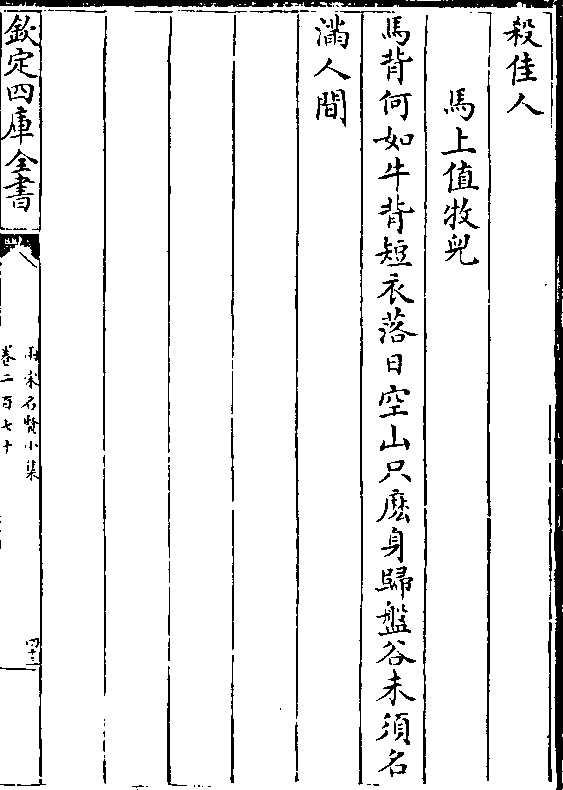 殺佳人
馬上值牧兒
馬背何如牛背短衣落日空山只麽身歸盤谷未須名
滿人間
欽定四庫全書
兩宋名賢小集
卷二百七十
四十三